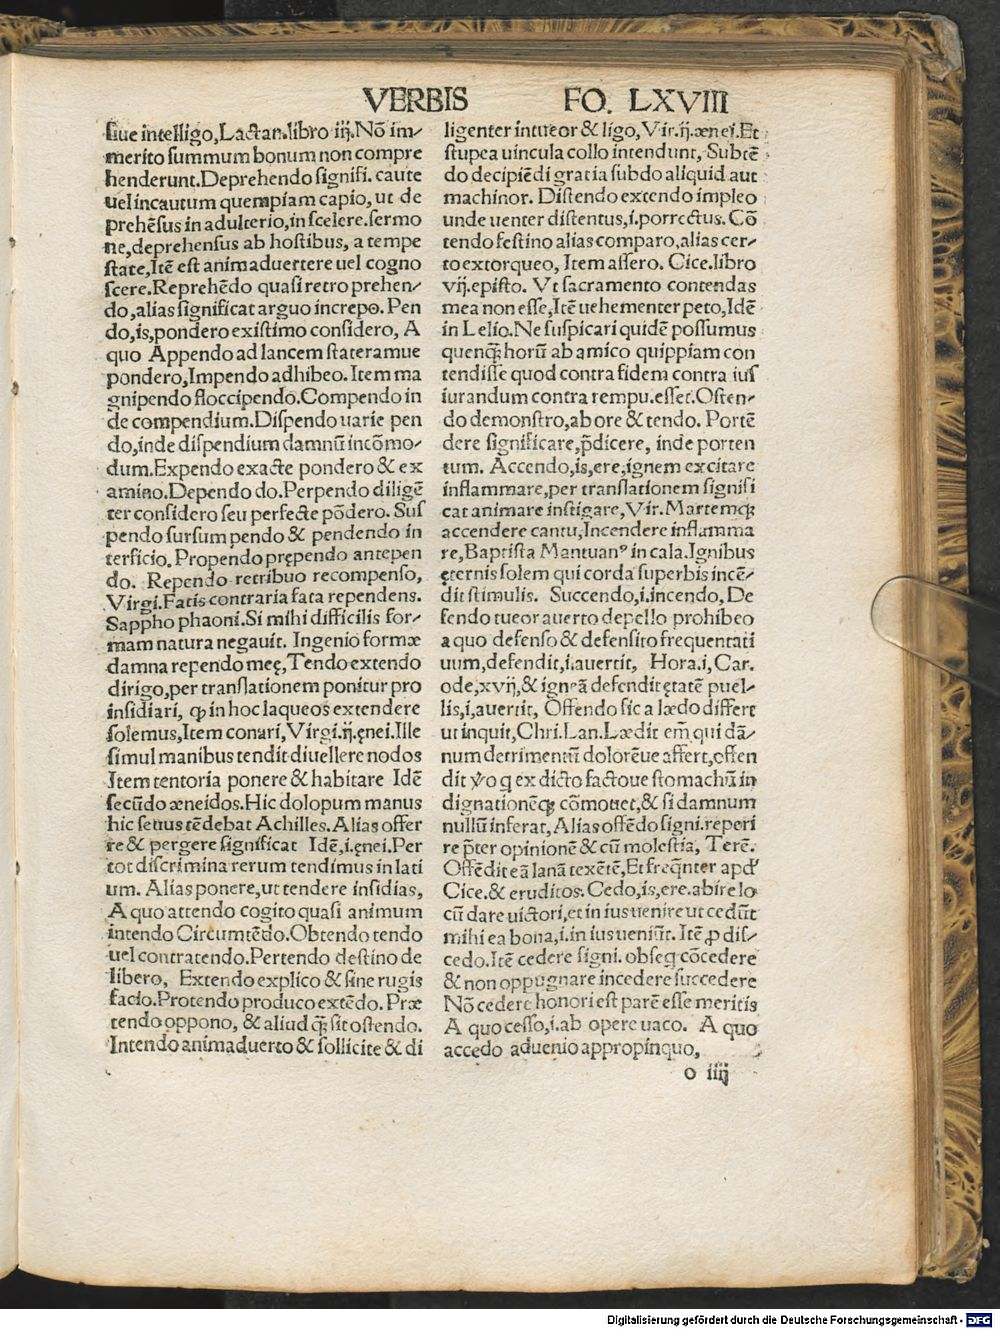 VERBIS FO. LXVIII
ſiue intelligo,Lactan.libro iij.Nõ im-
merito ſummum bonum non compre
henderunt.Deprehendo ſignifi. caute
uel incautum quempiam capio, ut de
prehẽſus in adulterio,in ſcelere.ſermo
ne,deprehenſus ab hoſtibus, a tempe
ſtate,Itẽ eſt animaduertere uel cogno
ſcere.Reprehẽdo quaſi retro prehen-
do,alias ſignificat arguo increpo. Pen
do,is,pondero exiſtimo conſidero, A
quo Appendo ad lancem ſtateramue
pondero,Impendo adhibeo. Item ma
gnipendo floccipendo.Compendo in
de compendium.Diſpendo uarie pen
do,inde diſpendium damnũ incõmo-
dum.Expendo exacte pondero & ex
amino.Dependo do.Perpendo diligẽ
ter conſidero ſeu perfecte põdero. Suſ
pendo ſurſum pendo & pendendo in
terficio. Propendo prępendo antepen
do. Rependo retribuo recompenſo,
Virgi.Fatis contraria fata rependens.
Sappho phaoni.Si mihi difficilis for-
mam natura negauit. Ingenio formæ
damna rependo meę,Tendo extendo
dirigo,per tranſlationem ponitur pro
inſidiari, ꝙ in hoc laqueos extendere
ſolemus,Item conari,Virgi.ij.ęnei.Ille
ſimul manibus tendit diuellere nodos
Item tentoria ponere & habitare Idẽ
ſecũdo æneidos.Hic dolopum manus
hic ſeuus tẽdebat Achilles.Alias offer
re & pergere ſignificat Idẽ,i.ęnei.Per
tot diſcrimina rerum tendimus in lati
um. Alias ponere,ut tendere inſidias,
A quo attendo cogito quaſi animum
intendo Circumtẽdo.Obtendo tendo
uel contratendo.Pertendo deſtino de
libero, Extendo explico & ſine rugis
facio.Protendo produco extẽdo. Præ
tendo oppono, & aliud q̃ȝ ſit oſtendo.
Intendo animaduerto & ſollicite & di
ligenter intueor & ligo,Vir.ij.ænei.Et
ſtupea uincula collo intendunt, Subtẽ
do decipiẽdi gratia ſubdo aliquid aut
machinor. Diſtendo extendo impleo
unde uenter diſtentus,i.porrectus. Cõ
tendo feſtino alias comparo,alias cer-
to extorqueo, Item aſſero. Cice.libro
vij.epiſto. Vt ſacramento contendas
mea non eſſe,Itẽ uehementer peto,Idẽ
in Lelio.Ne ſuſpicari quidẽ poſſumus
quenq̃ȝ horũ ab amico quippiam con
tendiſſe quod contra fidem contra iuſ
iurandum contra rempu.eſſet.Oſten-
do demonſtro,ab ore & tendo. Portẽ
dere ſignificare,p̃dicere, inde porten
tum. Accendo,is,ere,ignem excitare
inflammare,per tranſlationem ſignifi
cat animare inſtigare,Vir. Martemqꝫ
accendere cantu,Incendere inflamma
re,Baptiſta Mantuanꝰ in cala.Ignibus
ęternis ſolem qui corda ſuperbis incẽ-
dit ſtimulis. Succendo,i.incendo, De
fendo tueor auerto depello prohibeo
a quo defenſo & defenſito frequentati
uum,defendit,i.auertit, Hora.i,Car.
ode,xvij,& igneã defendit ętatẽ puel-
lis,i,auertit, Offendo ſic a lædo differt
ut inquit,Chri.Lan.Lædit em̃ qui dã-
num detrimentũ dolorẽue affert,offen
dit ṽo q ex dicto factoue ſtomachũ in
dignationẽqꝫ cõmouet,& ſi damnum
nullũ inferat, Alias offẽdo ſigni.reperi
re p̃ter opinionẽ & cũ moleſtia, Terẽ.
Offẽdit eã lanã texẽtẽ,Et freq̃nter apď
Cice.& eruditos. Cedo,is,ere.abire lo
cũ dare uictori,et in ius uenire ut cedũt
mihi ea bona,i.in ius ueniũt. Itẽ ꝓ diſ-
cedo.Itẽ cedere ſigni. obſeq cõcedere
& non oppugnare incedere ſuccedere
Nõ cedere honori eſt parẽ eſſe meritis
A quo ceſſo,i.ab opere uaco. A quo
accedo aduenio appropinquo,
o iiij
Digitalisierung gefördert durch die Deutsche Forschungsgemeinschaft - DFG